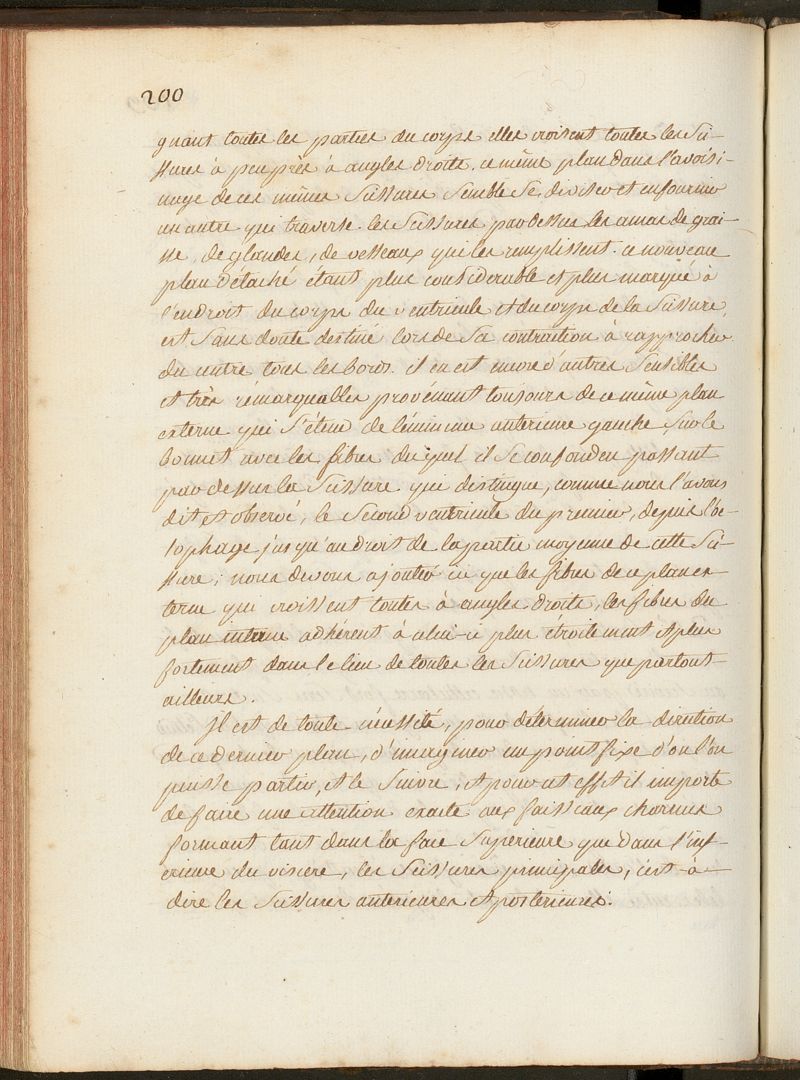 200
gnant toutes les parties du corps elles croisent toutes les Sci-
ssures à peu près à angles droits. ce même plan dans l'avoisi-
nage de ces mêmes Scissures Semble Se diviser et en fournir
un autre qui traverse les Scissures par dessus les amas de grai-
sse, de glandes, de vesseaux qui les remplissent. ce nouveau
plan détaché étant plus considerable et plus marqué à
l'endroit du corps du ventricule et du corps de la Scissure,
est Sans doute destiné lors de Sa contraction à rapprocher
du centre tous les bords. il en est encore d'autres Sensibles
et très rémarquables provénant toujours de ce même plan
externe qui S'étend de l'éminence anterieure gauche Sur le
bonnet avec les fibres du quel il Se confond en passant
par dessus la Scissure qui distingue, comme nous l'avons
dit et observé, le Second ventricule du premier, depuis l'œ-
sophage jusqu'au droit de la partie moyenne de cette Sci-
ssure; nous devons ajouter ici que les fibres de ce plan ex-
terne qui croissent toutes à angles droits, les fibres du
plan interne adhérent à celui-ci plus étroitement et plus
fortement dans le lieu de toutes les Scissures que partout-
ailleurs.
Il est de toute nécessité, pour déterminer la direction
de ce dernier plan, d'imaginer un point fixe d'ou l'on
puisse partir, et le Suivre, et pour cet effet il importe
de faire une attention exacte aux faisseaux charnus
formant tant dans la face Superieure que dans l'inf-
erieure du viscere, les Scissures principales, c'est-à-
dire les Scissures anterieures et posterieures.